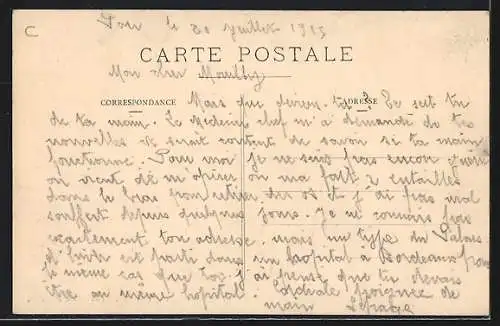 C
le 20 Juillet 1915
CARTE POSTALE
Mon cher
CORRESPONDANCE
ADRESSE
Mais que deviens-tu? Se sert tu
de ta main. Le Médecin chef m'a demandé de tes
nouvelles et serait content de savoir si ta main
fonctionne. Pour moi je ne suis pas encon
on vient de m'opérer on ma fait 2 entailles
dans le bras pour retirer des os et j'ai pas mal
souffert depuis quelques jours. Je ne connais pas
exactement ton adresse. mais un type du Palais
est parti dans un hopital à Bordeaux pour
le même cas que toi, j'ai pensé que tu devais
être au même hopital. Cordiale poignée de
main